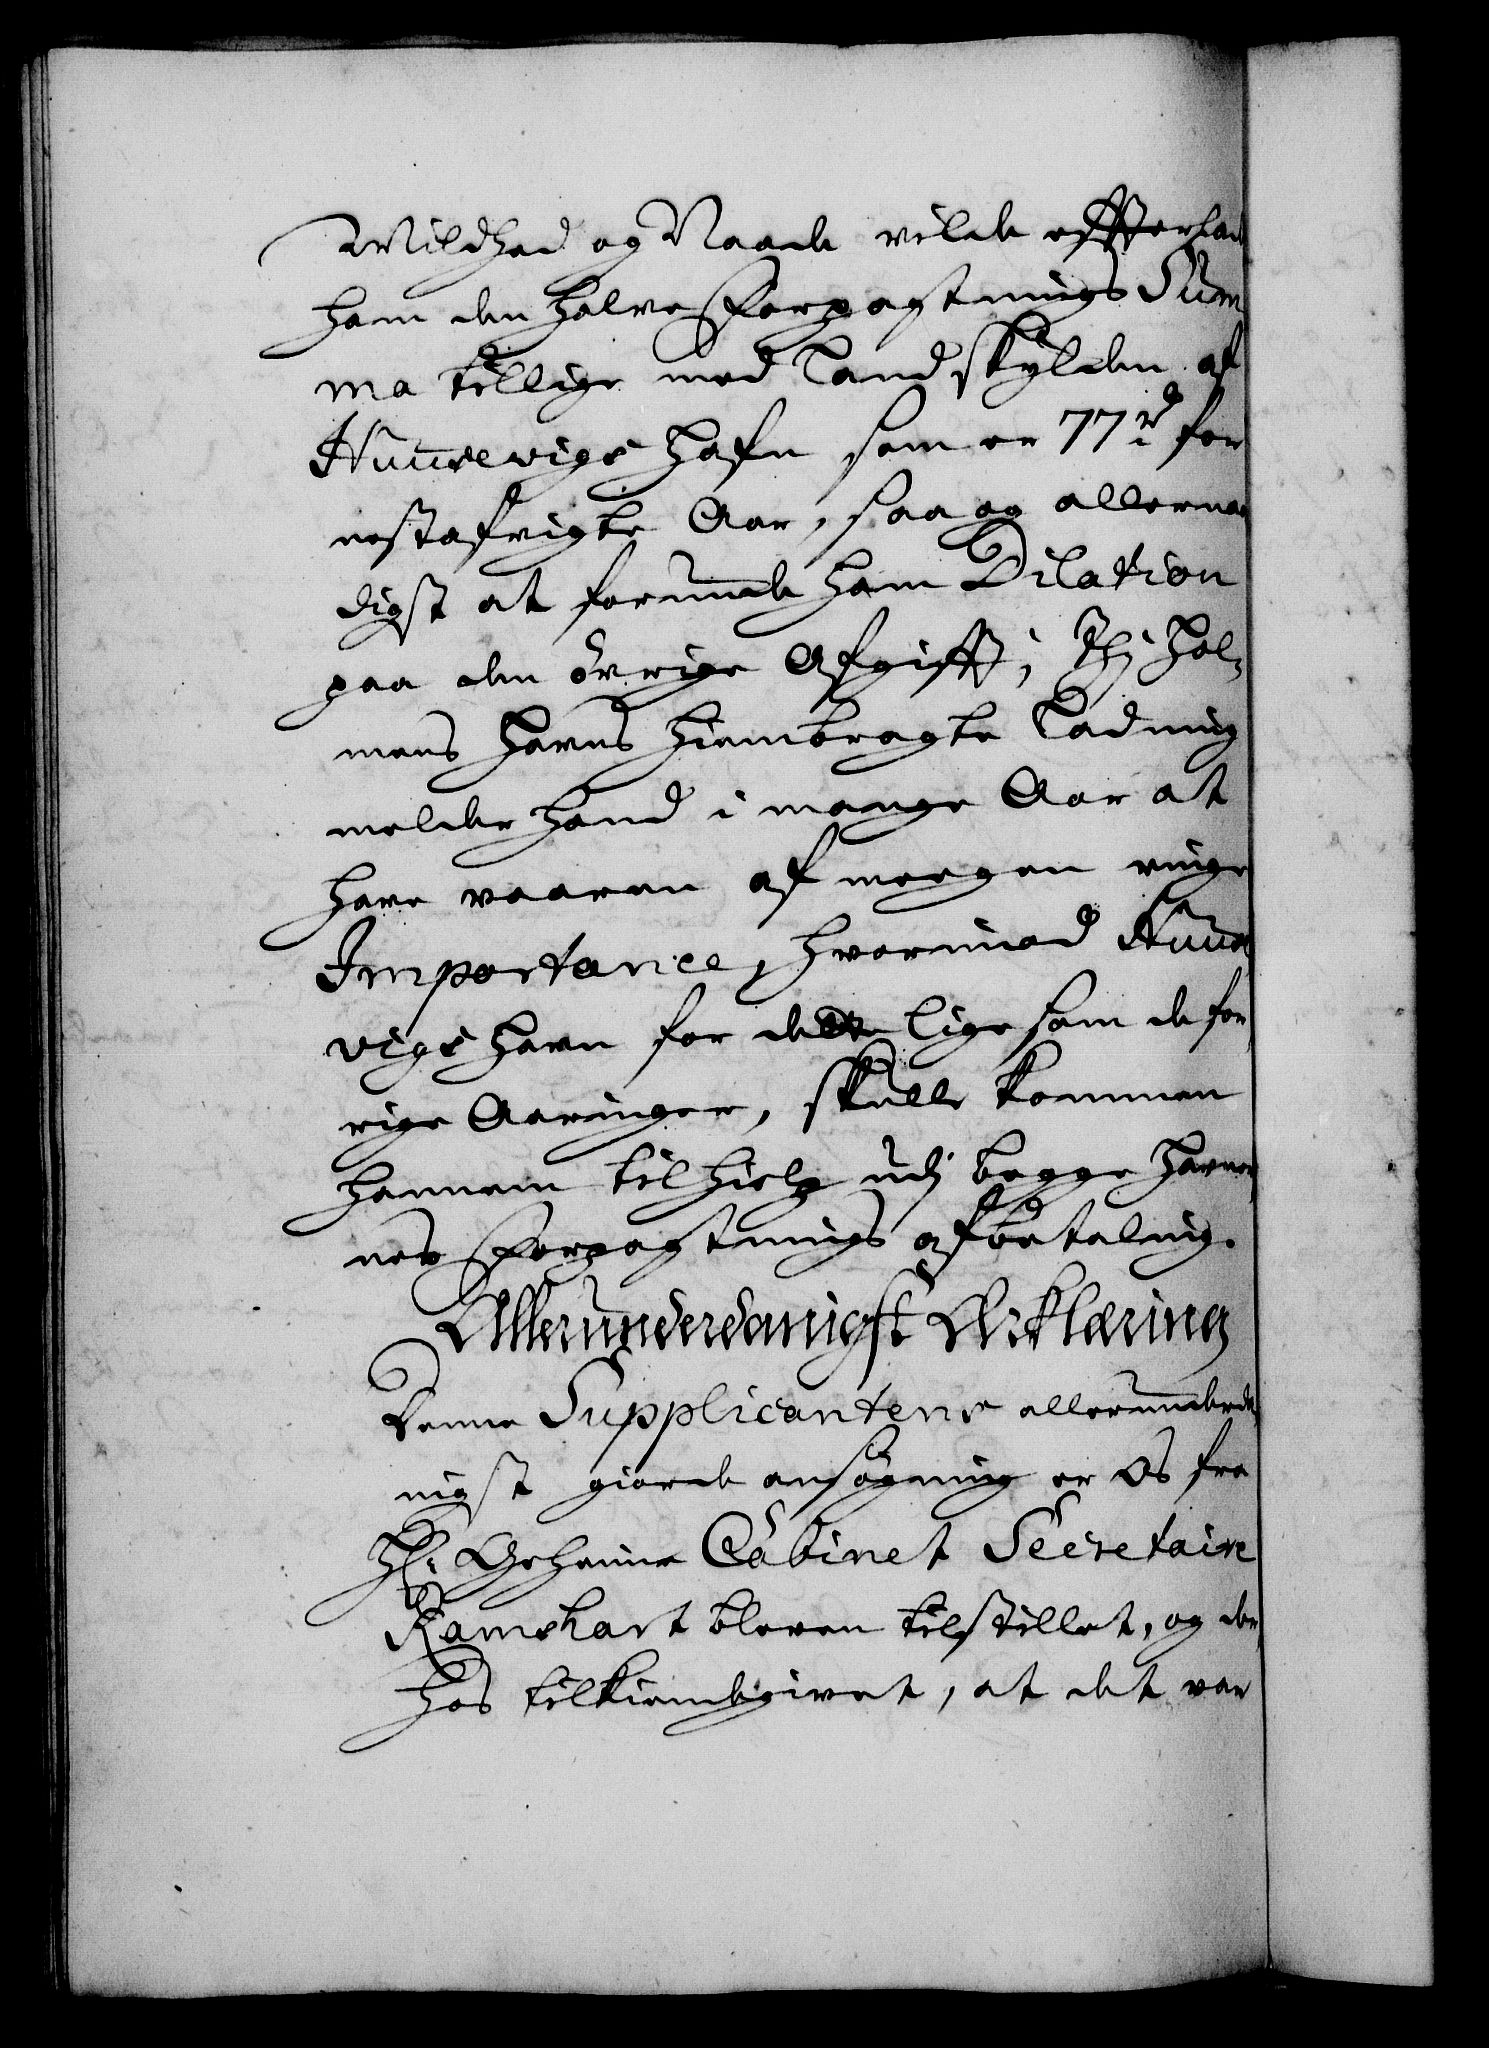 Mildhed og Naade vilde effterlade
ham den halve Forpagtnings Sum
ma tillige med Landskylden af
Kunsevigs hafn som er 77 rd for
nestafvigte Aar, saa og allernaa
digst at forunde ham Dilation
paa den övrige Afgifft, Thj Hol-
mens Havns hiembragte Ladning
melder hand i mange Aar at
have vaaren af megen ringe
Importance, hvorimod
vigs Havn for dette lige som de for
rige Aaringer, skulle kommen
hannem til hielp udj begge Havner
nes Forpagtnings afbetaling.
Allerunderdanigst Erklæring
Denne Supplicantens allerunderda
nigst giorde ansögning er Os fra
Hr. Geheime Cabinet Secretaire
Ramshart bleven tilstillet, og der
hos tilkiendegivet, at det var